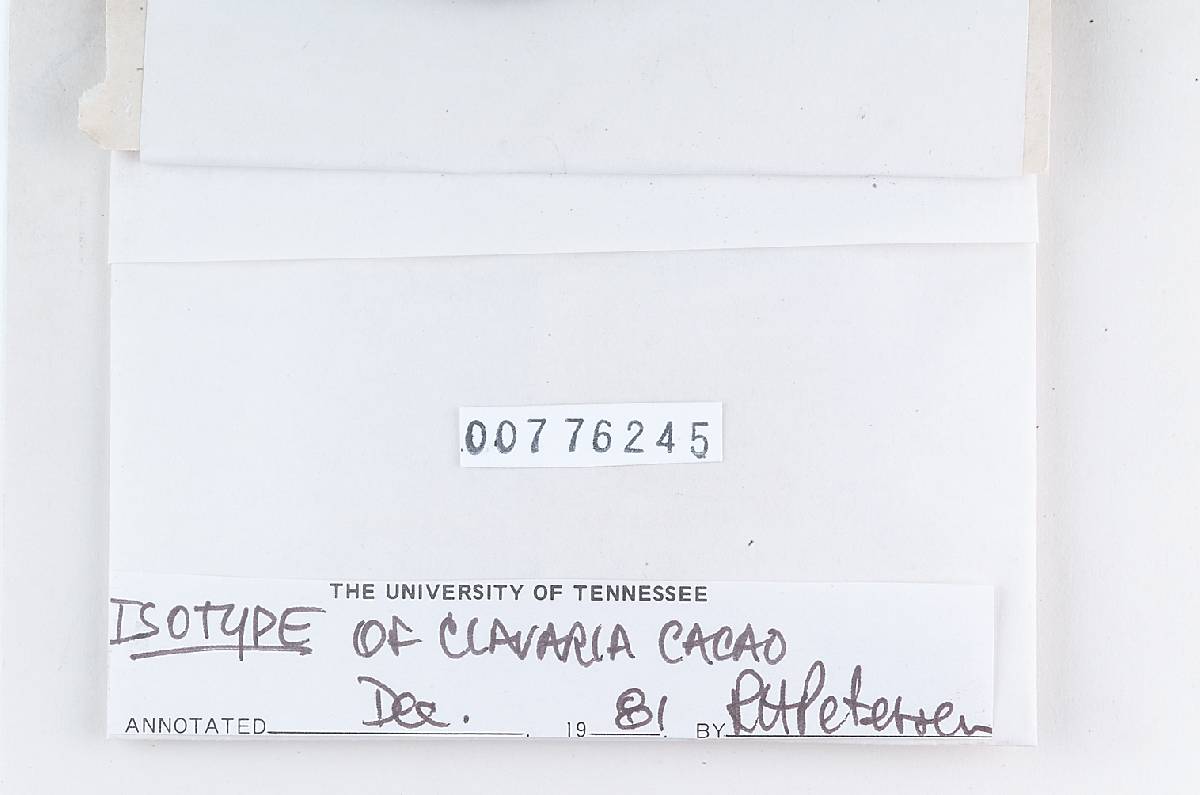 00776245
THE UNIVERSITY OF TENNESSEE
ISOTYPE OF CLAVARIA CACAO
ANNOTATED Dec. 19 81 BY RHPetersen